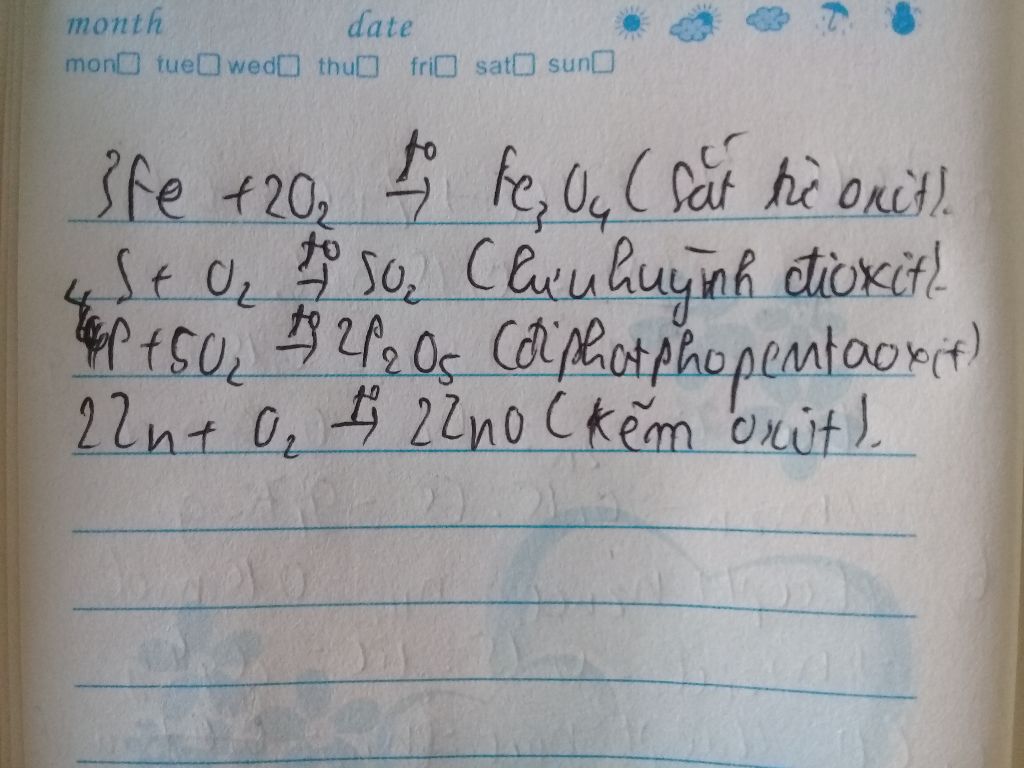 month date
mon tue wed thu fri sat sun
3Fe + 2O₂ →(t°) Fe₃O₄ (Sắt từ oxit).
S + O₂ →(t°) SO₂ (lưu huỳnh đioxit).
4P + 5O₂ →(t°) 2P₂O₅ (điphotphopentaoxit)
2Zn + O₂ →(t°) 2ZnO (kẽm oxit).